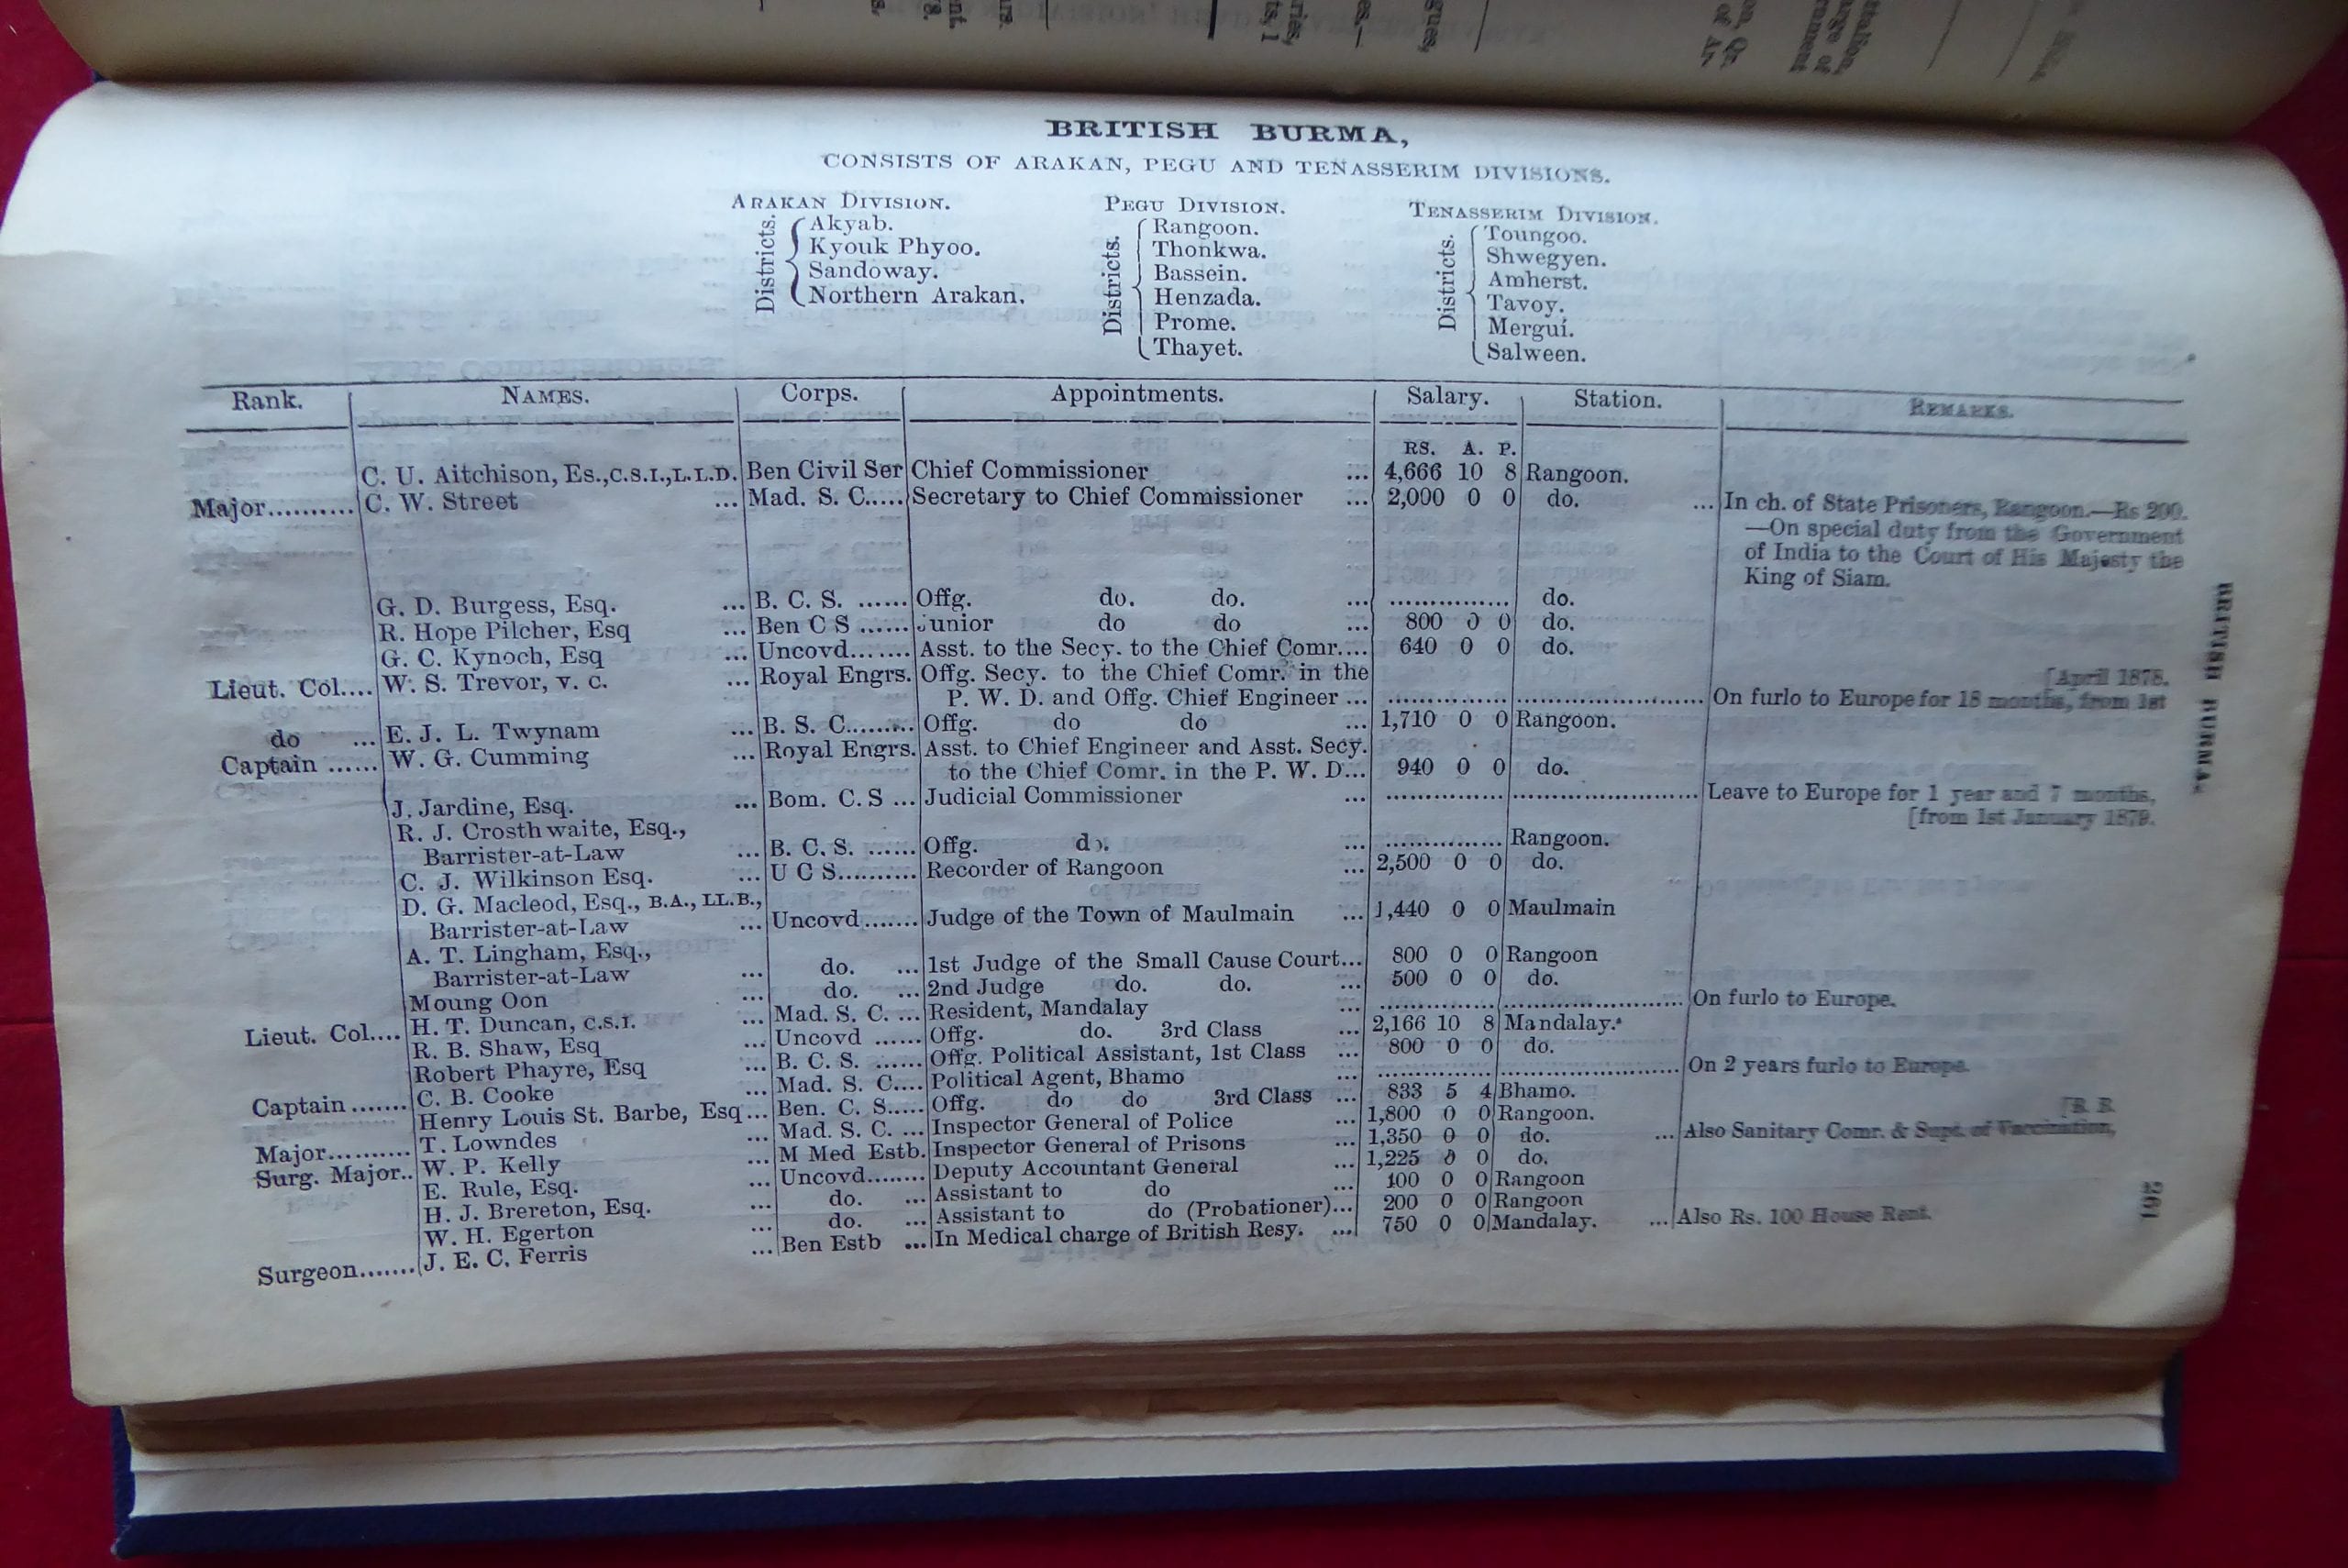 BRITISH BURMA,
CONSISTS OF ARAKAN, PEGU AND TENASSERIM DIVISIONS.
ARAKAN DIVISION.
Districts.
Akyab.
Kyouk Phyoo.
Sandoway.
Northern Arakan.
PEGU DIVISION.
Districts.
Rangoon.
Thonkwa.
Bassein.
Henzada.
Prome.
Thayet.
TENASSERIM DIVISION.
Districts.
Toungoo.
Shwegyen.
Amherst.
Tavoy.
Mergui.
Salween.
Rank. NAMES. Corps. Appointments. Salary. Station. REMARKS.
RS. A. P.
C. U. Aitchison, Es.,C.S.I.,L.L.D. Ben Civil Ser Chief Commissioner ... 4,666 10 8 Rangoon.
Major.......... C. W. Street ... Mad. S. C..... Secretary to Chief Commissioner ... 2,000 0 0 do. ... In ch. of State Prisoners, Rangoon.—Rs 200.
—On special duty from the Government
of India to the Court of His Majesty the
King of Siam.
G. D. Burgess, Esq. ... B. C. S. ...... Offg. do. do. ... ............... do.
R. Hope Pilcher, Esq ... Ben C S ...... Junior do do ... 800 0 0 do.
G. C. Kynoch, Esq ... Uncovd....... Asst. to the Secy. to the Chief Comr.... 640 0 0 do.
Lieut. Col.... W. S. Trevor, V. C. ... Royal Engrs. Offg. Secy. to the Chief Comr. in the [April 1878.
P. W. D. and Offg. Chief Engineer ... ............... ........................ On furlo to Europe for 18 months, from 1st
do ... E. J. L. Twynam ... B. S. C......... Offg. do do ... 1,710 0 0 Rangoon.
Captain ...... W. G. Cumming ... Royal Engrs. Asst. to Chief Engineer and Asst. Secy.
to the Chief Comr. in the P. W. D... 940 0 0 do.
J. Jardine, Esq. ... Bom. C. S ... Judicial Commissioner ... ............... ........................ Leave to Europe for 1 year and 7 months,
[from 1st January 1879.
R. J. Crosthwaite, Esq.,
Barrister-at-Law ... B. C. S. ...... Offg. do. ... ............... Rangoon.
C. J. Wilkinson Esq. ... U C S.......... Recorder of Rangoon ... 2,500 0 0 do.
D. G. Macleod, Esq., B.A., LL.B.,
Barrister-at-Law ... Uncovd....... Judge of the Town of Maulmain ... 1,440 0 0 Maulmain
A. T. Lingham, Esq.,
Barrister-at-Law ... do. ... 1st Judge of the Small Cause Court... 800 0 0 Rangoon
Moung Oon ... do. ... 2nd Judge do. do. ... 500 0 0 do.
Lieut. Col.... H. T. Duncan, C.S.I. ... Mad. S. C. ... Resident, Mandalay ............... ........................ On furlo to Europe.
R. B. Shaw, Esq ... Uncovd ...... Offg. do. 3rd Class ... 2,166 10 8 Mandalay.
Robert Phayre, Esq ... B. C. S. ...... Offg. Political Assistant, 1st Class ... 800 0 0 do.
Captain ....... C. B. Cooke ... Mad. S. C.... Political Agent, Bhamo ... ............... ........................ On 2 years furlo to Europe.
Henry Louis St. Barbe, Esq ... Ben. C. S..... Offg. do do 3rd Class ... 833 5 4 Bhamo.
Major.......... T. Lowndes ... Mad. S. C. ... Inspector General of Police ... 1,800 0 0 Rangoon.
Surg. Major.. W. P. Kelly ... M Med Estb. Inspector General of Prisons ... 1,350 0 0 do. ... Also Sanitary Comr. & Supt. of Vaccination,
E. Rule, Esq. ... Uncovd........ Deputy Accountant General ... 1,225 0 0 do.
H. J. Brereton, Esq. ... do. ... Assistant to do ... 400 0 0 Rangoon
W. H. Egerton ... do. ... Assistant to do (Probationer)... 200 0 0 Rangoon
Surgeon....... J. E. C. Ferris ... Ben Estb ... In Medical charge of British Resy. ... 750 0 0 Mandalay. ... Also Rs. 100 House Rent.
BRITISH BURMA.
261